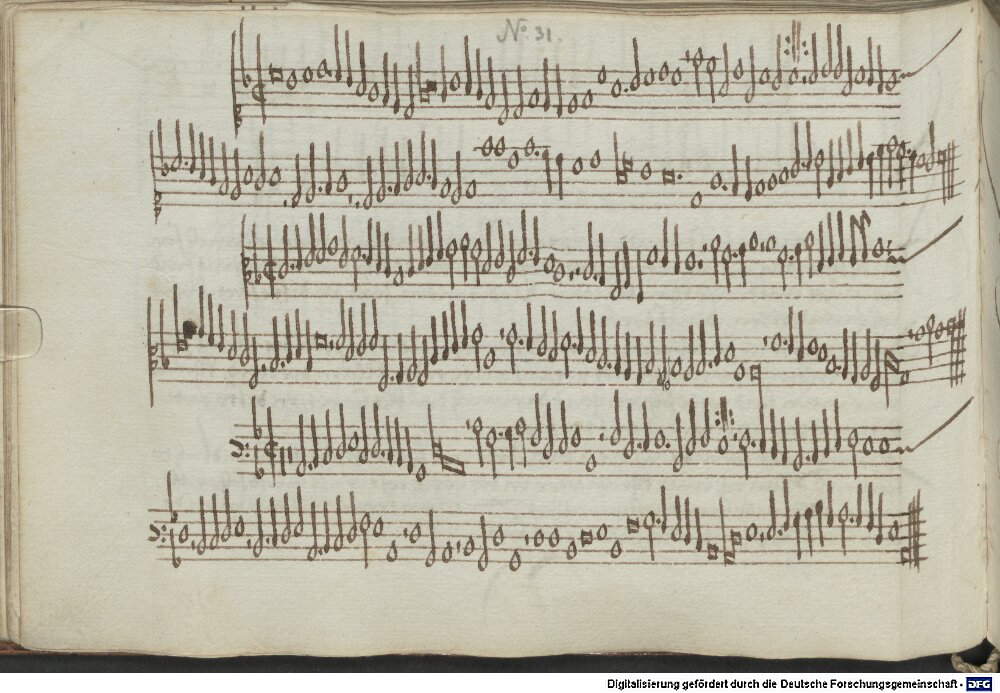 No. 31.
Digitalisierung gefördert durch die Deutsche Forschungsgemeinschaft - DFG